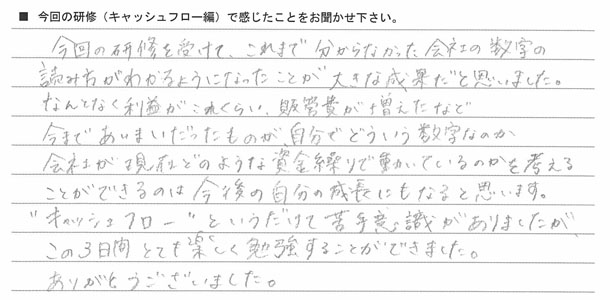 ■ 今回の研修（キャッシュフロー編）で感じたことをお聞かせ下さい。
今回の研修を受けて、これまで分からなかった会社の数字の
読み方がわかるようになったことが大きな成果だと思いました。
なんとなく利益がこれくらい、販管費が増えたなど
今まであいまいだったものが自分でどういう数字なのか
会社が現在どのような資金繰りで動いているのかを考える
ことができるのは今後の自分の成長にもなると思います。
"キャッシュフロー"というだけで苦手意識がありましたが、
この3日間とても楽しく勉強することができました。
ありがとうございました。